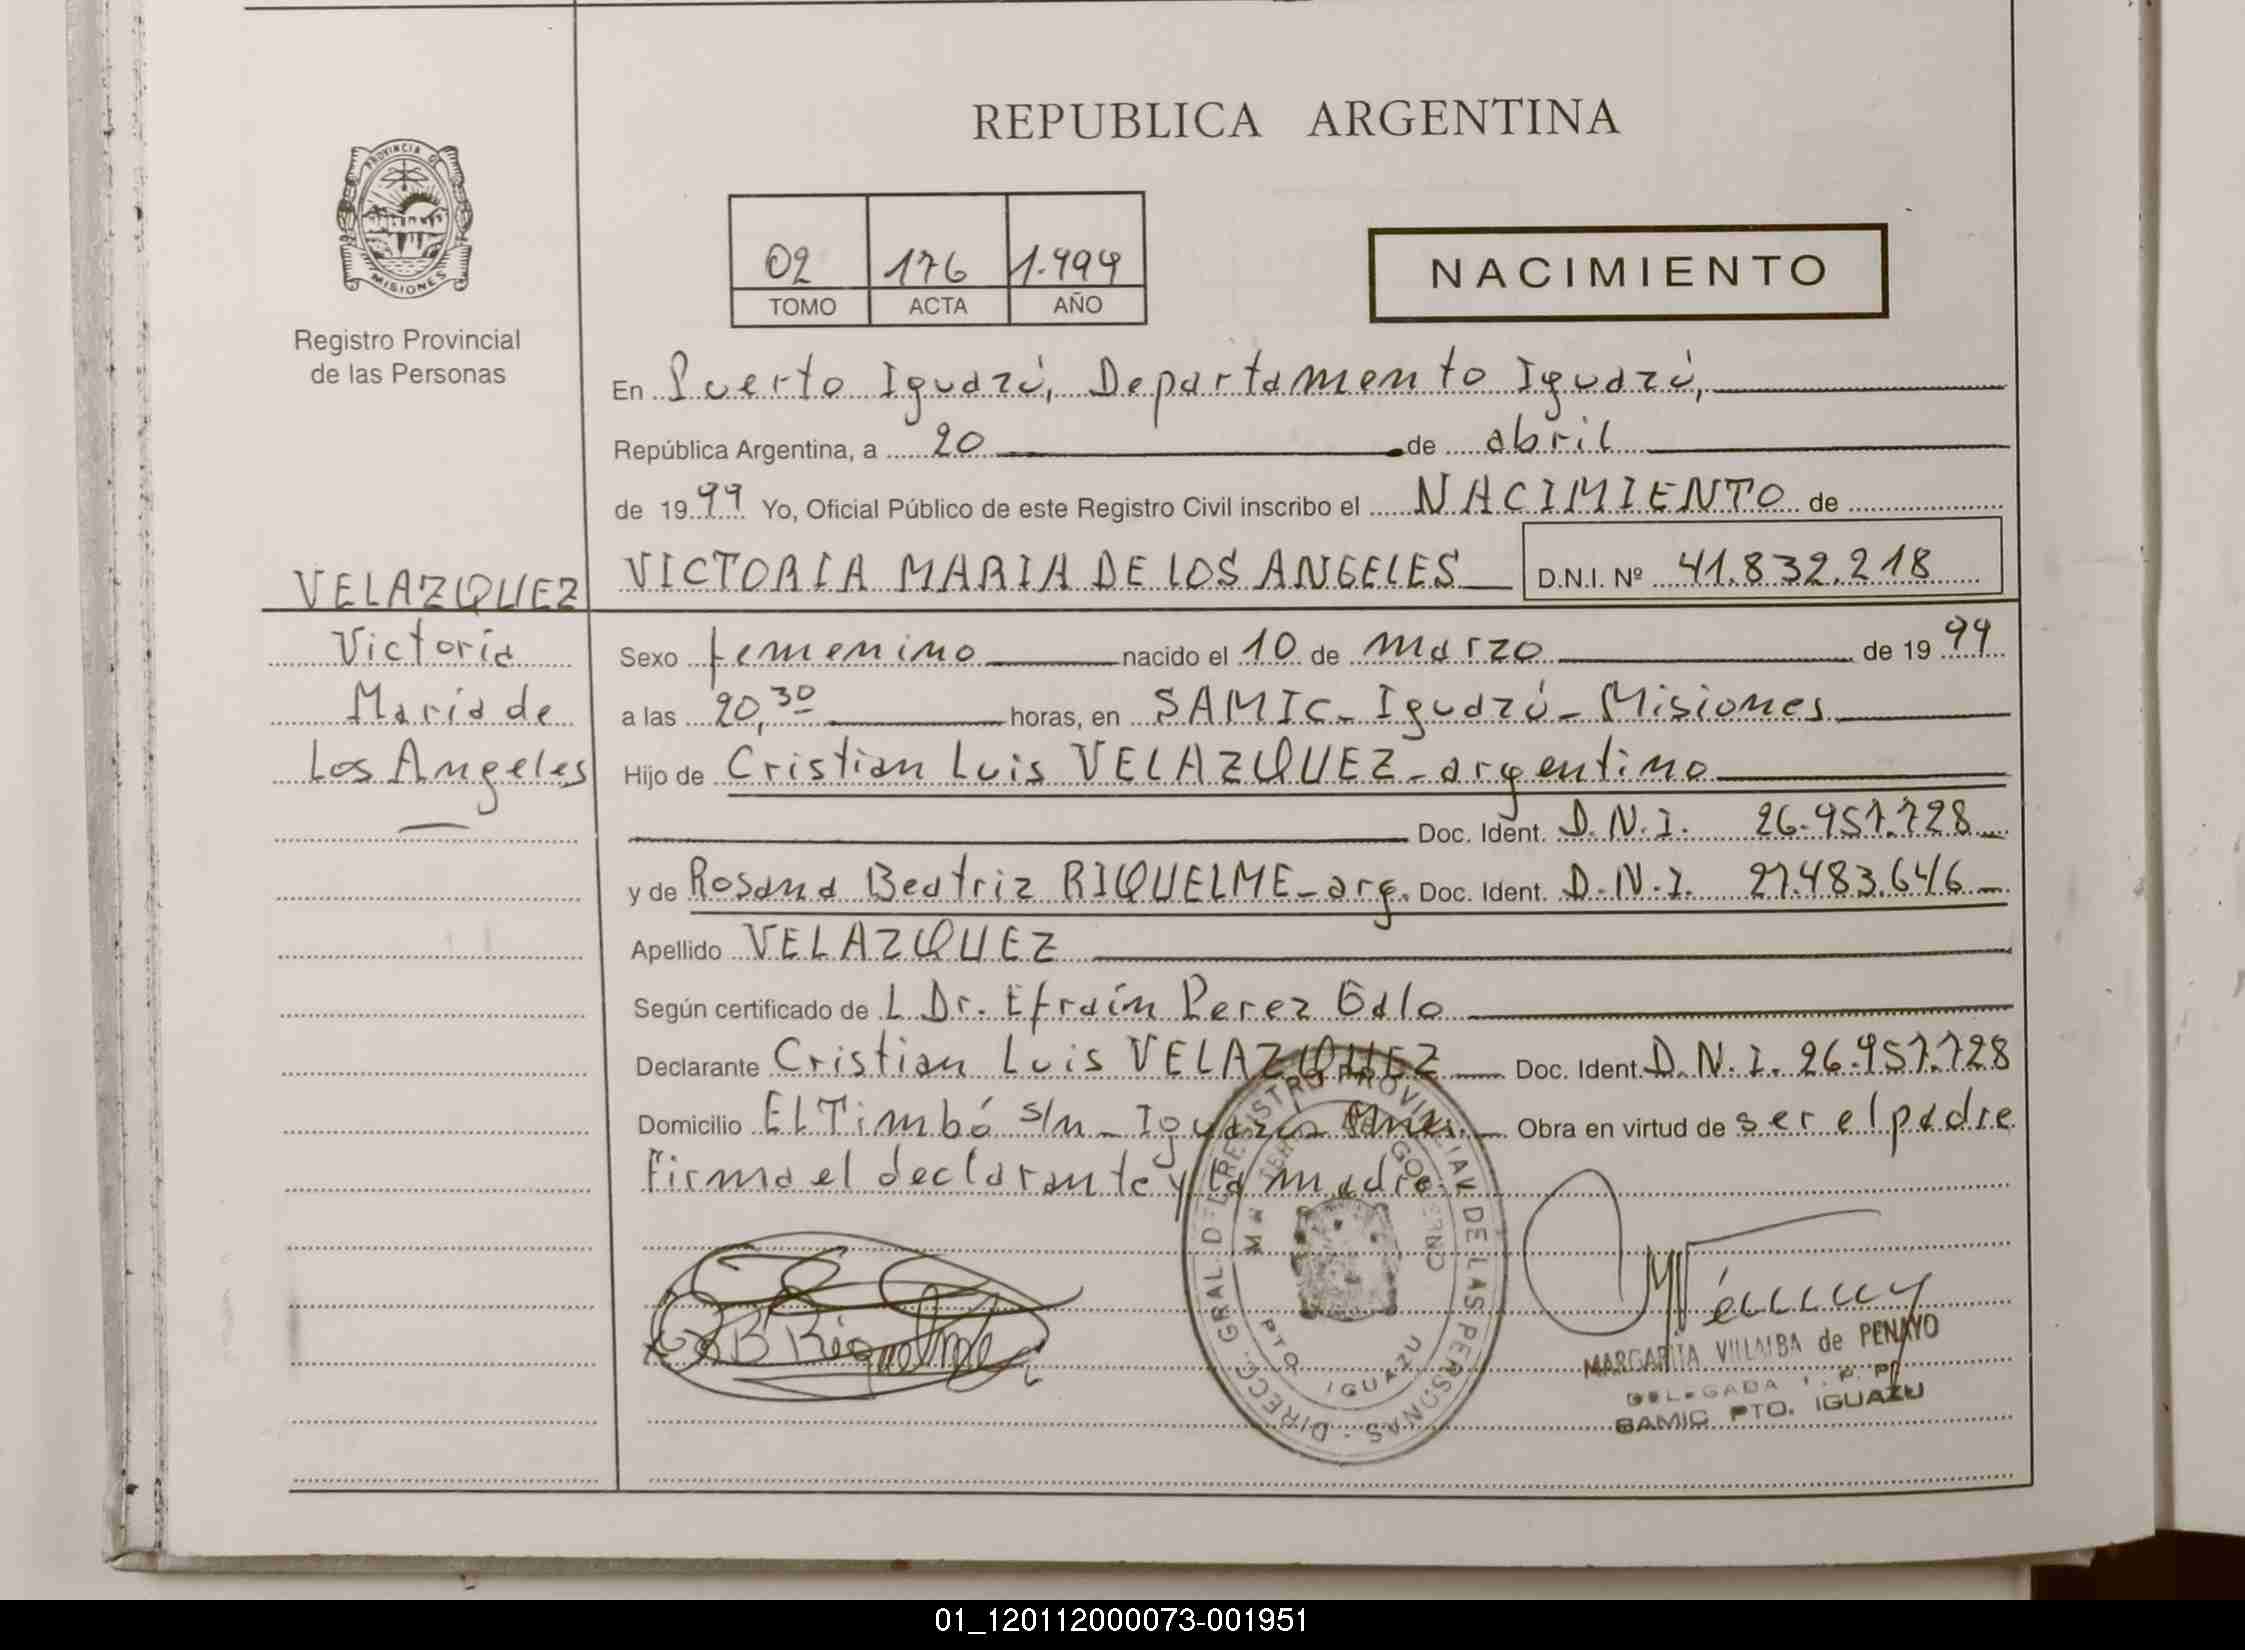 REPUBLICA ARGENTINA
PROVINCIA DE
MISIONES
Registro Provincial
de las Personas
02 176 1.999
TOMO ACTA AÑO
NACIMIENTO
En Puerto Iguazú, Departamento Iguazú,
República Argentina, a 20 de abril
de 1999 Yo, Oficial Público de este Registro Civil inscribo el NACIMIENTO de
VICTORIA MARIA DE LOS ANGELES D.N.I. Nº 41.832.218
VELAZQUEZ
Victoria
María de
Los Angeles
Sexo femenino nacido el 10 de marzo de 1999
a las 20,30 horas, en SAMIC - Iguazú - Misiones
Hijo de Cristian Luis VELAZQUEZ - argentino
Doc. Ident. D.N.I. 26.957.728
y de Rosana Beatriz RIQUELME - arg. Doc. Ident. D.N.I. 27.483.646
Apellido VELAZQUEZ
Según certificado de L Dr. Efraín Perez
Declarante Cristian Luis VELAZQUEZ Doc. Ident. D.N.I. 26.957.728
Domicilio El Timbó s/n - Iguazú - Mnes. Obra en virtud de ser el padre
Firma el declarante y la madre
B Riquelme
DIRECC. GRAL. DEL REGISTRO PROVINCIAL DE LAS PERSONAS
GOBIERNO
PTO. IGUAZU
MARGARITA VILLALBA de PENAYO
DELEGADA
SAMIC PTO. IGUAZU
01_120112000073-001951